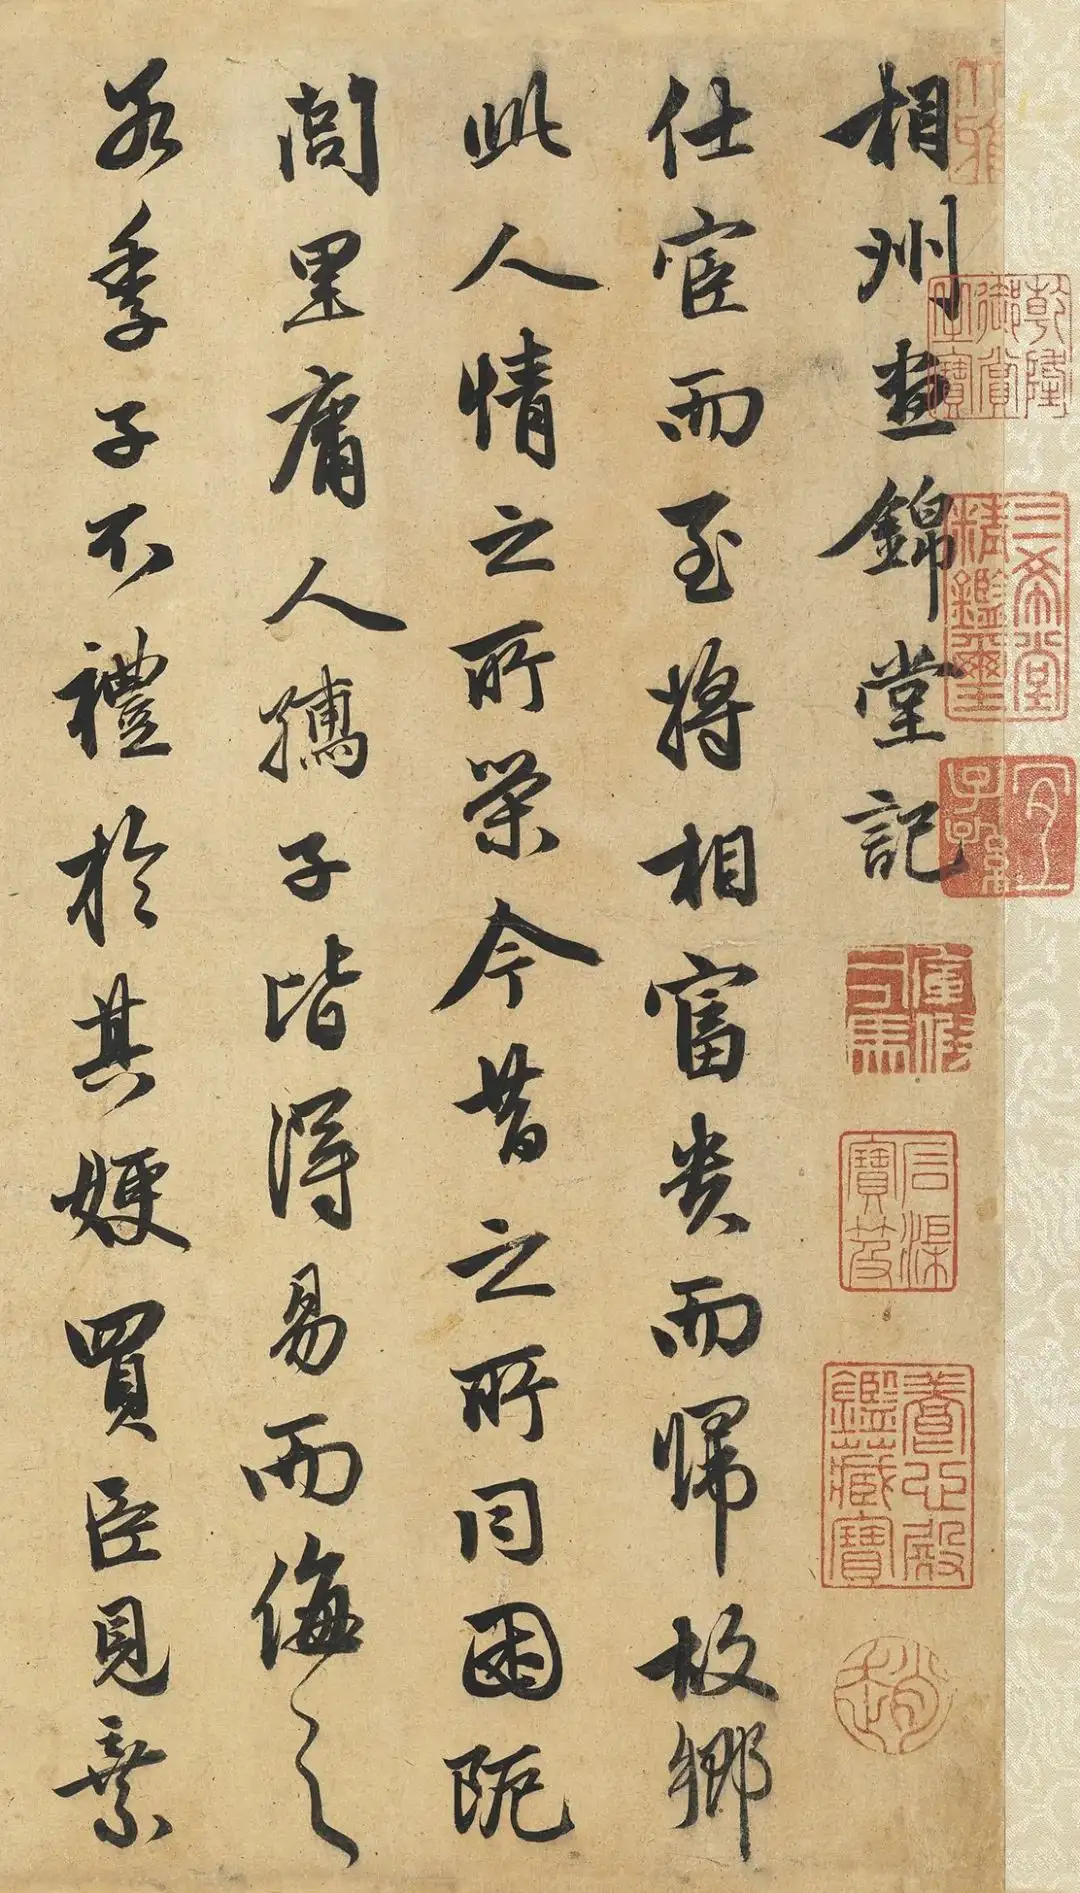 相州晝錦堂記
仕宦而至將相富貴而歸故鄉
此人情之所榮今昔之所同困阨
閭里庸人孺子皆得易而侮之
若季子不禮於其嫂買臣見棄
乾隆御賞之寶
三希堂精鑑璽
宜子孫
軍假司馬
石渠寶笈
養心殿鑑藏寶